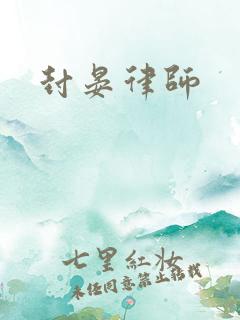 封晏律師
七里紅妝
未经同意禁止转载